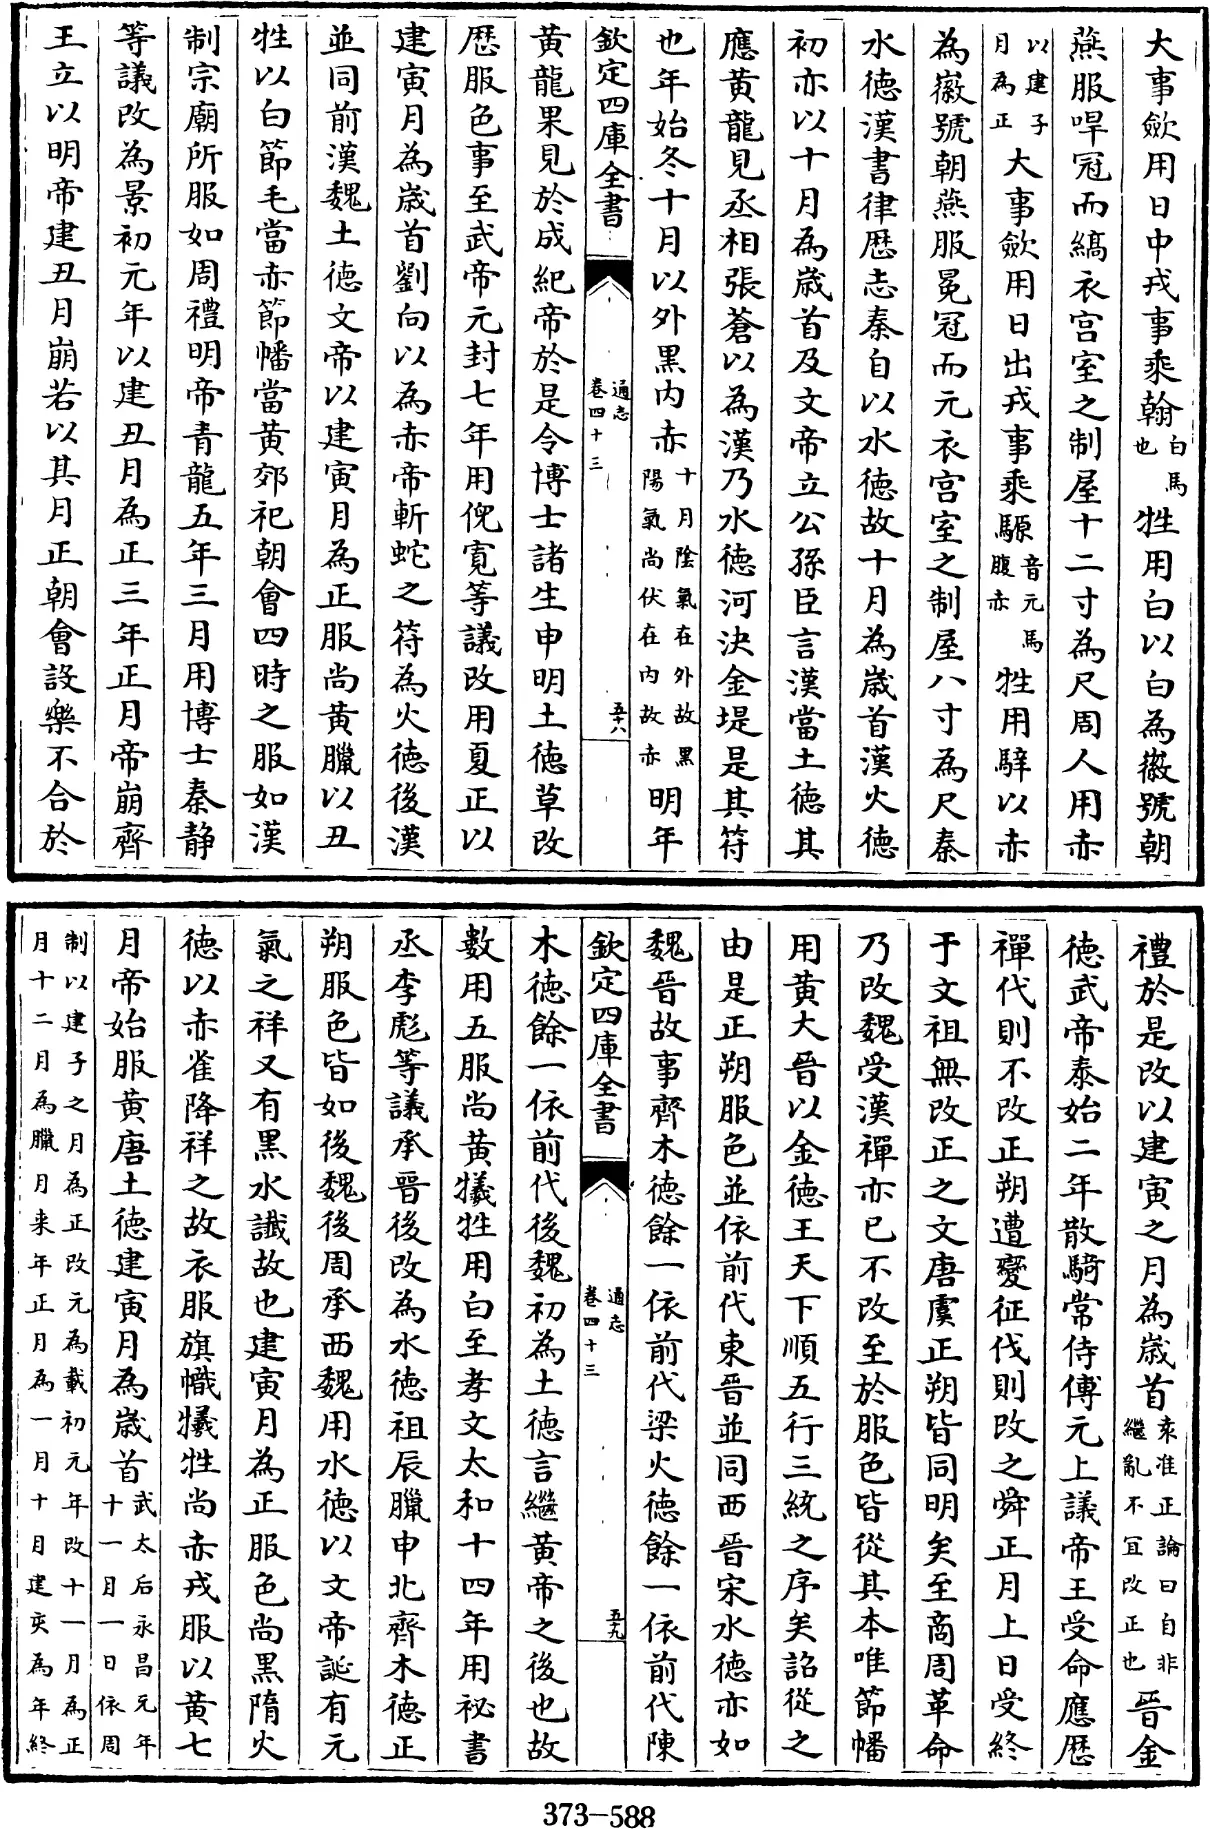 大事歛用日中戎事乘翰白馬也牲用白以白為徽號朝
燕服哻冠而縞衣宫室之制屋十二寸為尺周人用赤
以建子月為正大事歛用日出戎事乘騵音元馬腹赤牲用騂以赤
為徽號朝燕服冕冠而元衣宫室之制屋八寸為尺秦
水徳漢書律歴志秦自以水徳故十月為歳首漢火徳
初亦以十月為歳首及文帝立公孫臣言漢當土徳其
應黄龍見丞相張蒼以為漢乃水徳河決金堤是其符
也年始冬十月以外黒内赤十月陰氣在外故黒陽氣尚伏在内故赤明年
欽定四庫全書
通志
卷四十三
五十八
黄龍果見於成紀帝於是令博士諸生申明土徳草改
歴服色事至武帝元封七年用倪寛等議改用夏正以
建寅月為歳首劉向以為赤帝斬蛇之符為火徳後漢
並同前漢魏土徳文帝以建寅月為正服尚黄臘以丑
牲以白節毛當赤節幡當黄郊祀朝會四時之服如漢
制宗廟所服如周禮明帝青龍五年三月用博士秦静
等議改為景初元年以建丑月為正三年正月帝崩齊
王立以明帝建丑月崩若以其月正朝會設樂不合於
禮於是改以建寅之月為歳首袁准正論曰自非繼亂不宜改正也晉金
徳武帝泰始二年散騎常侍傅元上議帝王受命應歴
禪代則不改正朔遭變征伐則改之舜正月上日受終
于文祖無改正之文唐虞正朔皆同明矣至商周革命
乃改魏受漢禪亦已不改至於服色皆從其本唯節幡
用黄大晉以金徳王天下順五行三統之序矣詔從之
由是正朔服色並依前代東晉並同西晉宋水徳亦如
魏晉故事齊木徳餘一依前代梁火徳餘一依前代陳
欽定四庫全書
通志
卷四十三
五十九
木徳餘一依前代後魏初為土徳言繼黄帝之後也故
數用五服尚黄犧牲用白至孝文太和十四年用祕書
丞李彪等議承晉後改為水徳祖辰臘申北齊木徳正
朔服色皆如後魏後周承西魏用水徳以文帝誕有元
氣之祥又有黒水讖故也建寅月為正服色尚黒隋火
徳以赤雀降祥之故衣服旗幟犧牲尚赤戎服以黄七
月帝始服黄唐土徳建寅月為歳首武太后永昌元年十一月一日依周
制以建子之月為正改元為載初元年改十一月為正
月十二月為臘月来年正月為一月十月建亥為年終
373-588